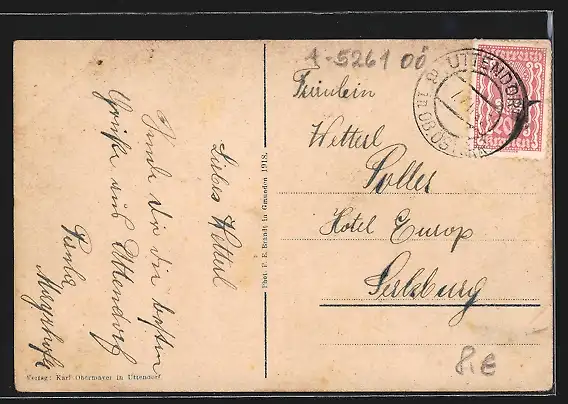 1-5261 OÖ
UTTENDORF
Fräulein
Wetterl
Hotel Europ
Salzburg
Liebes Wetterl
Sende dir die besten
Grüße aus Uttendorf
Mayrhofer
Phot. F. E. Brandt in Gmunden 1918.
Verlag: Karl Obermayer in Uttendorf.